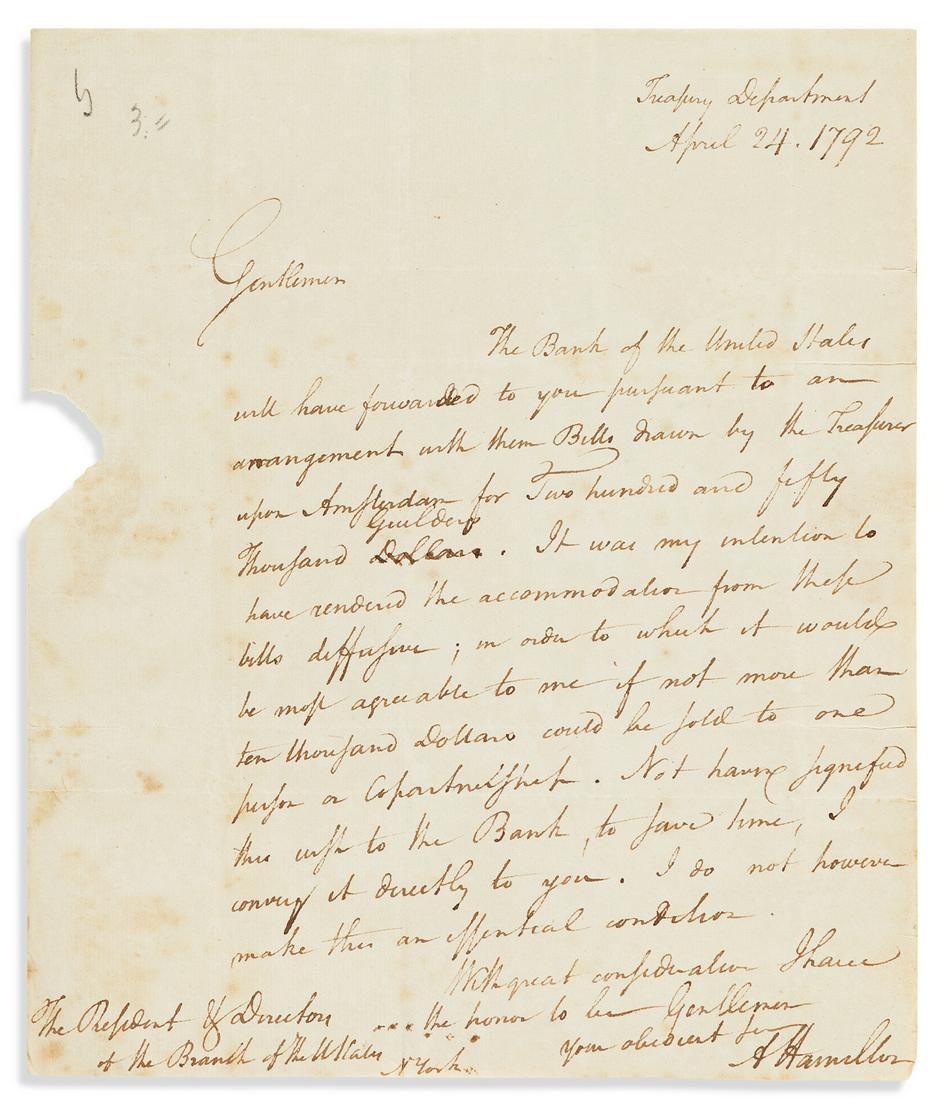 3.=
Treasury Department
April 24. 1792
Gentlemen
The Bank of the United States
will have forwarded to you pursuant to an
arrangement with them Bills drawn by the Treasurer
upon Amsterdam for Two hundred and fifty
Guilders
Thousand Dollars. It was my intention to
have rendered the accommodation from these
bills diffusive; in order to which it would
be most agreeable to me if not more than
ten thousand Dollars could be sold to one
person or Copartnership. Not having signified
this wish to the Bank, to save time, I
convey it directly to you. I do not however
make this an essential condition.
With great consideration I have
the honor to be Gentlemen
your obedient ser
A Hamilton
The President & Directors
of the Branch of the UStates
N York